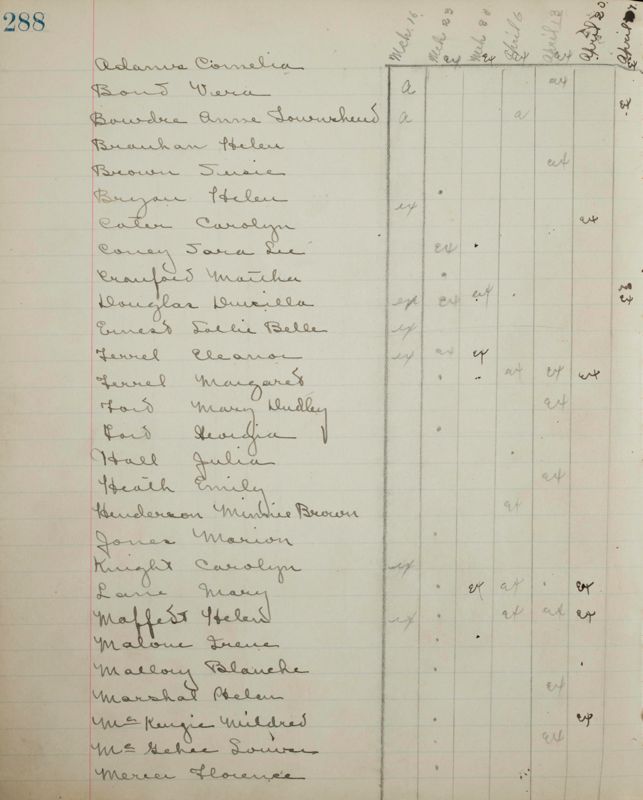 288
Mch. 16 Mch 23 Mch 30 April 6 April 13 April 20 April
ex ex ex ex ex ex
Adams Cornelia
Bond Vera a ex
Bowdre Anne Townshend a a
Branham Helen
Brown Susie ex
Bryan Helen ex
Cater Carolyn ex
Coney Sara Lee ex
Cranford Martha
Douglas Drucilla ex ex ex
Ernest Sallie Belle ex
Ferrel Eleanor ex ex ex
Ferrel Margaret ex ex ex
Ford Mary Dudley ex
Ford Georgia
Hall Julia
Heath Emily ex
Henderson Minnie Brown ex
Jones Marion
Knight Carolyn ex
Lane Mary ex ex ex
Maffett Helen ex ex ex ex
Malone Irene
Mallory Blanche
Marshal Helen ex
McKenzie Mildred ex
McGehee Louise ex
Mercer Florence